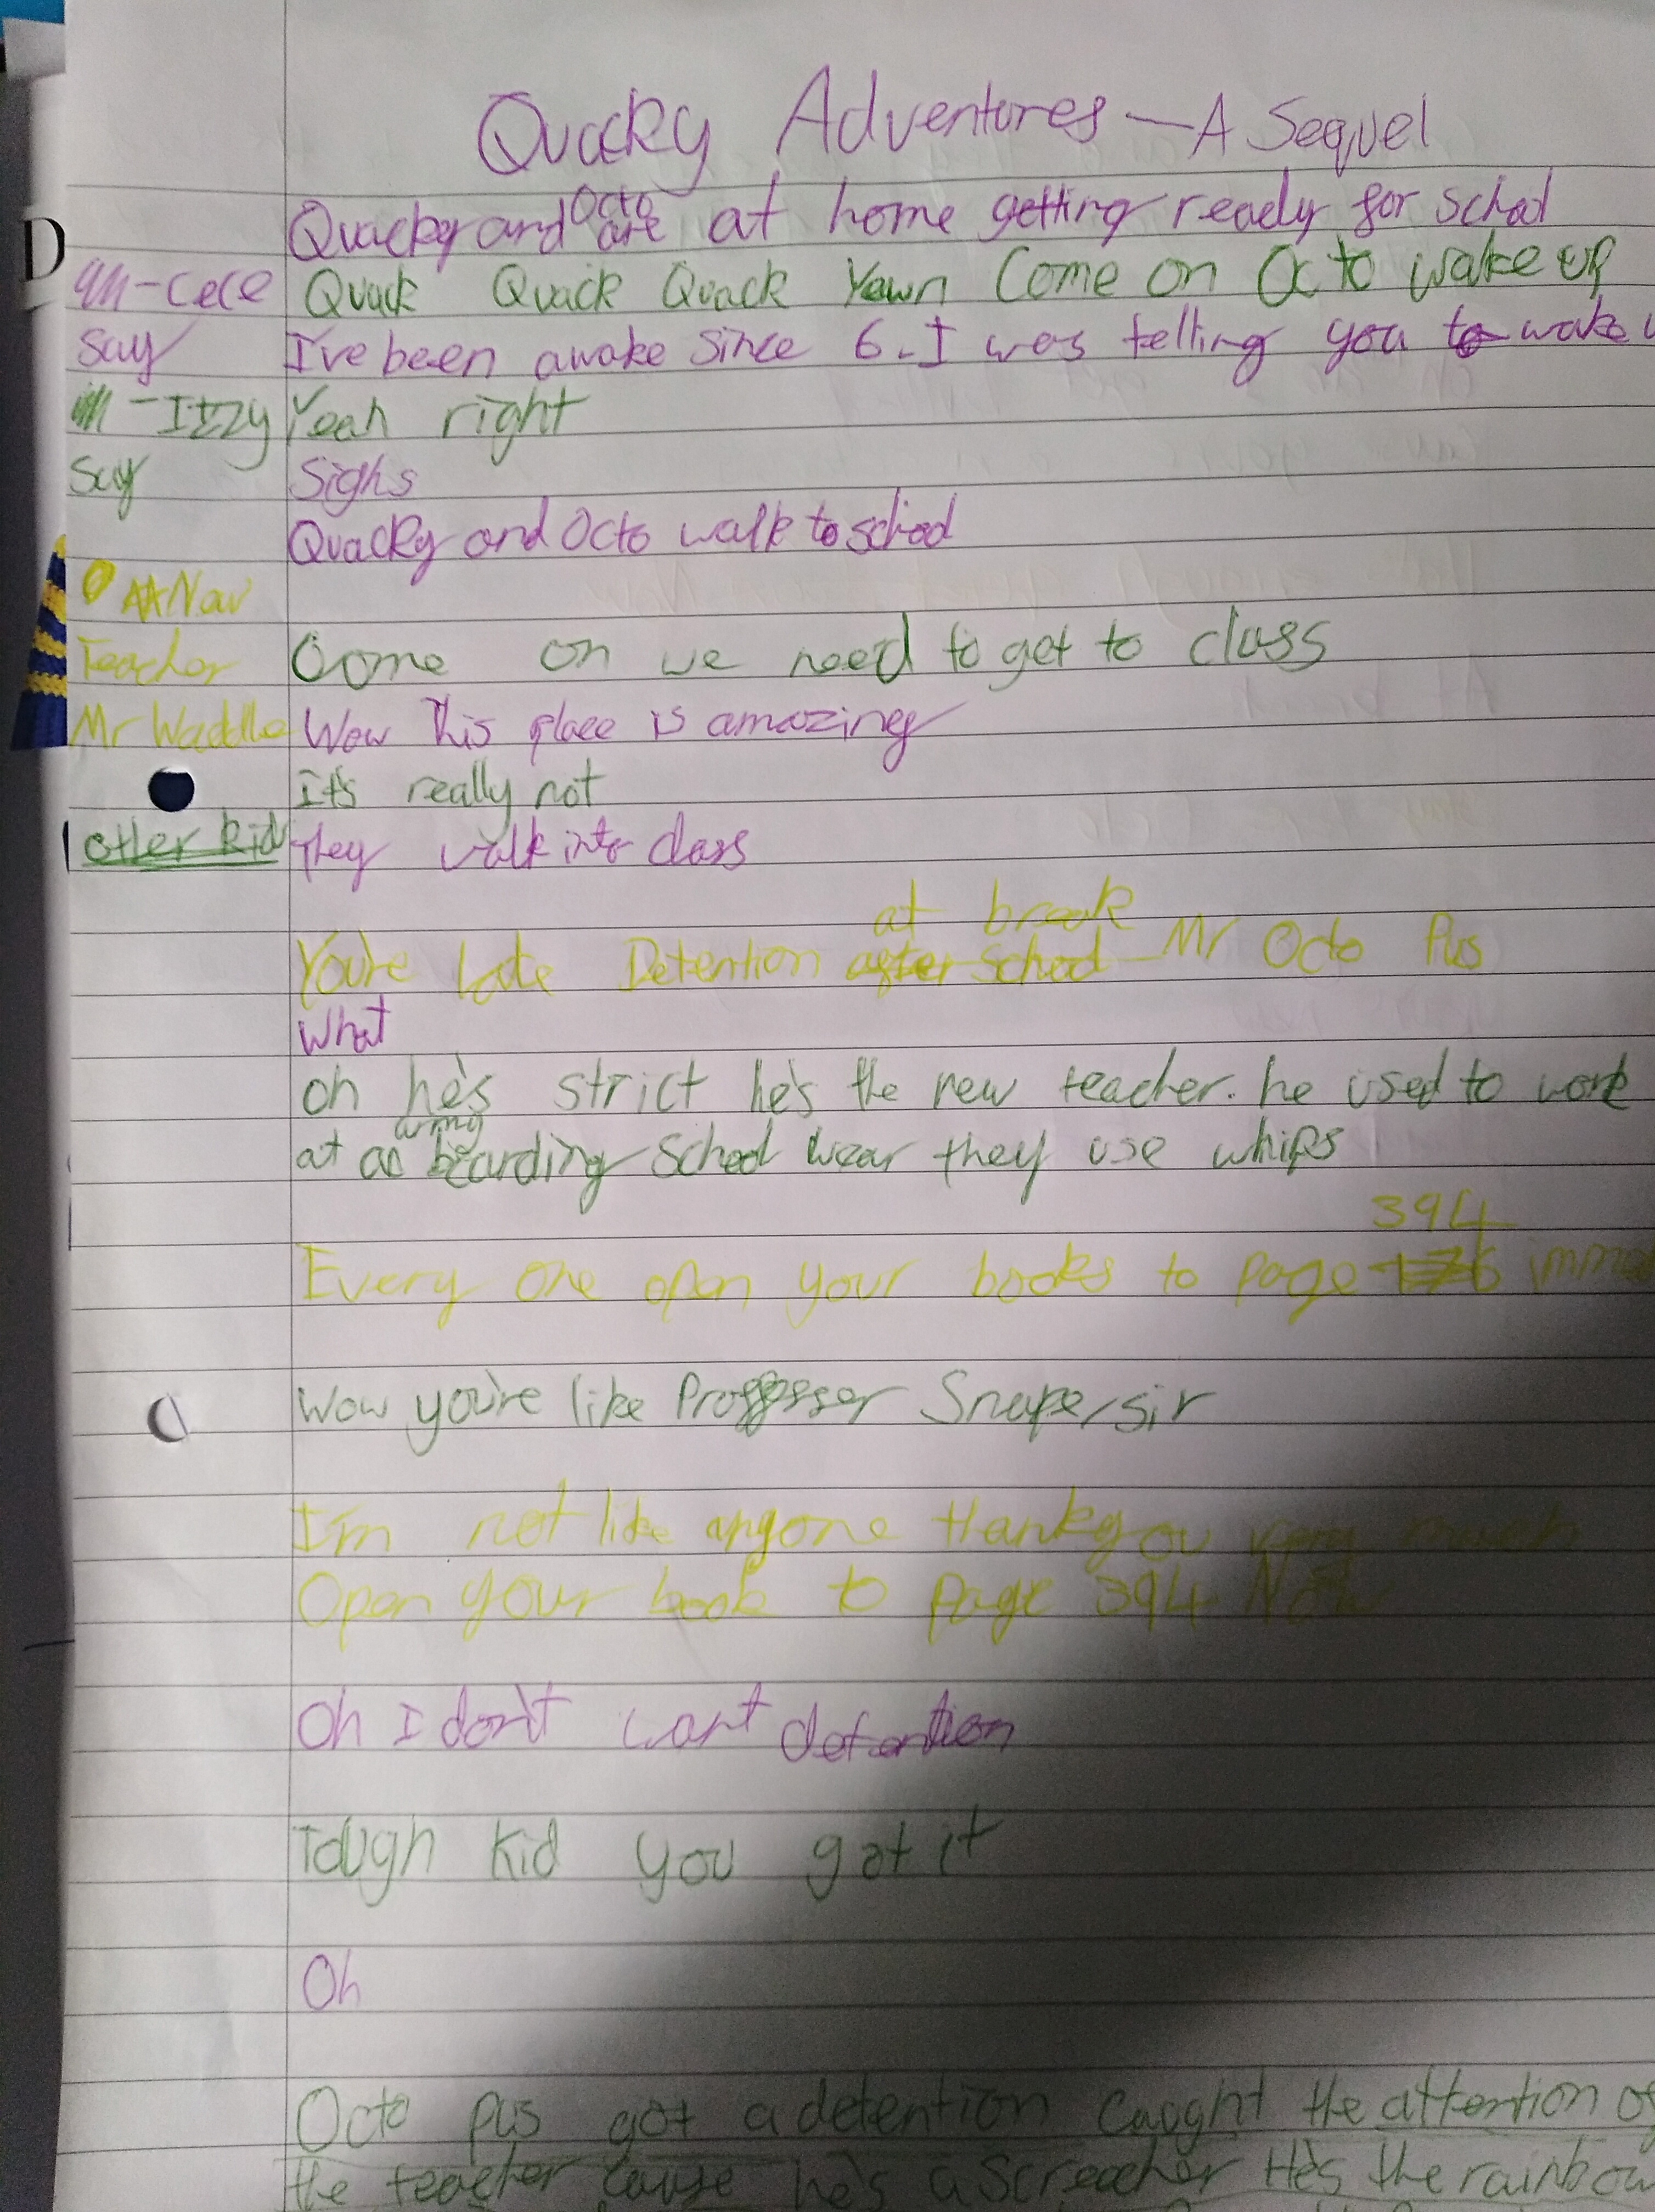 Quacky Adventures — A Sequel
Quacky and Octo are at home getting ready for school
Cece Quack Quack Quack Yawn Come on Octo wake up
say I've been awake since 6. I was telling you to wake
- Izzy Yeah right
say Sighs
Quacky and Octo walk to school
Teacher Come on we need to get to class
Mr Waddle Wow This place is amazing
It's really not
other kid They walk into class
at break
You're late Detention after school Mr Octo Pus
What
oh he's strict he's the new teacher. he used to work
army
at a boarding school wear they use whips
394
Every one open your books to page 176
Wow you're like Proffesser Snape, sir
I'm not like anyone thankyou very much
Open your book to page 394 Now
Oh I don't want detention
Tough kid you got it
Oh
Octo pus got a detention caught the attention of
the teacher cause he's a screacher He's the rainbow